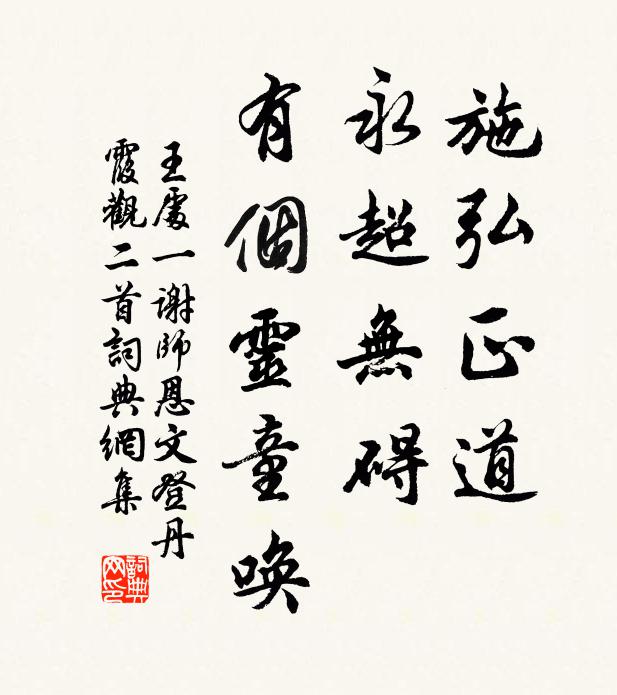 施弘正道
永超無碍
有個靈童喚
王處一謝師恩文登丹
霞觀二首詞典網集
詞典网印